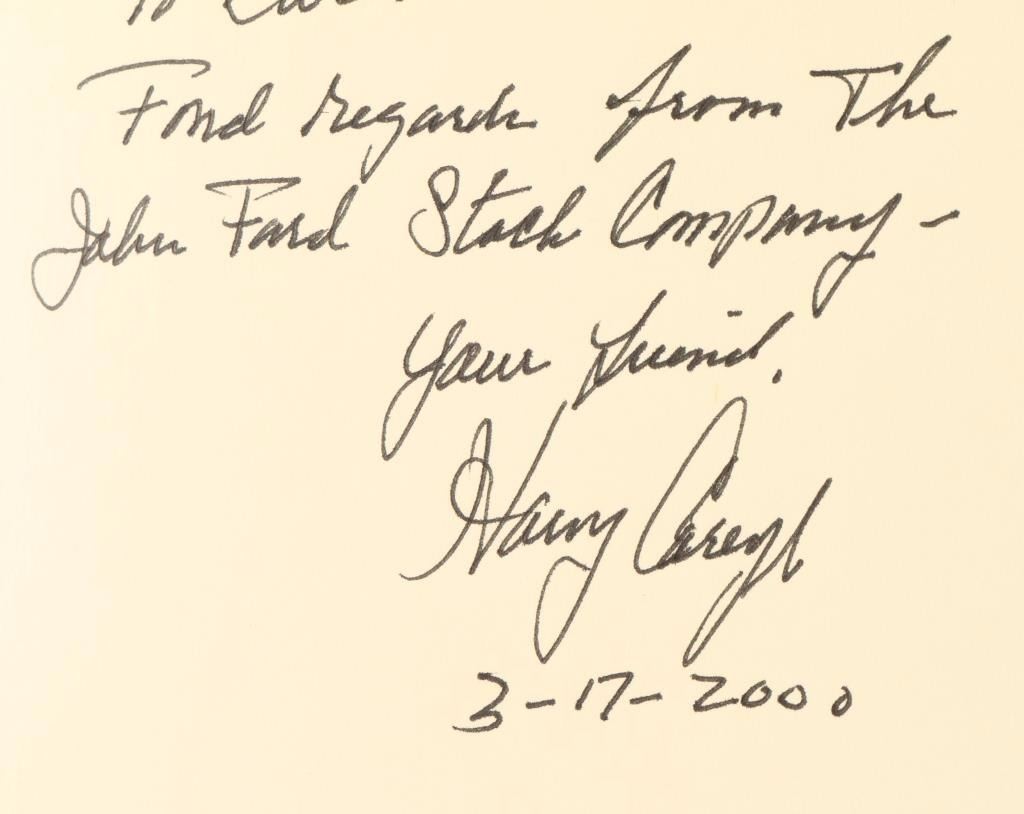 To
Fond regards from The
John Ford Stock Company -
Your friend,
Harry Carey Jr
3-17-2000